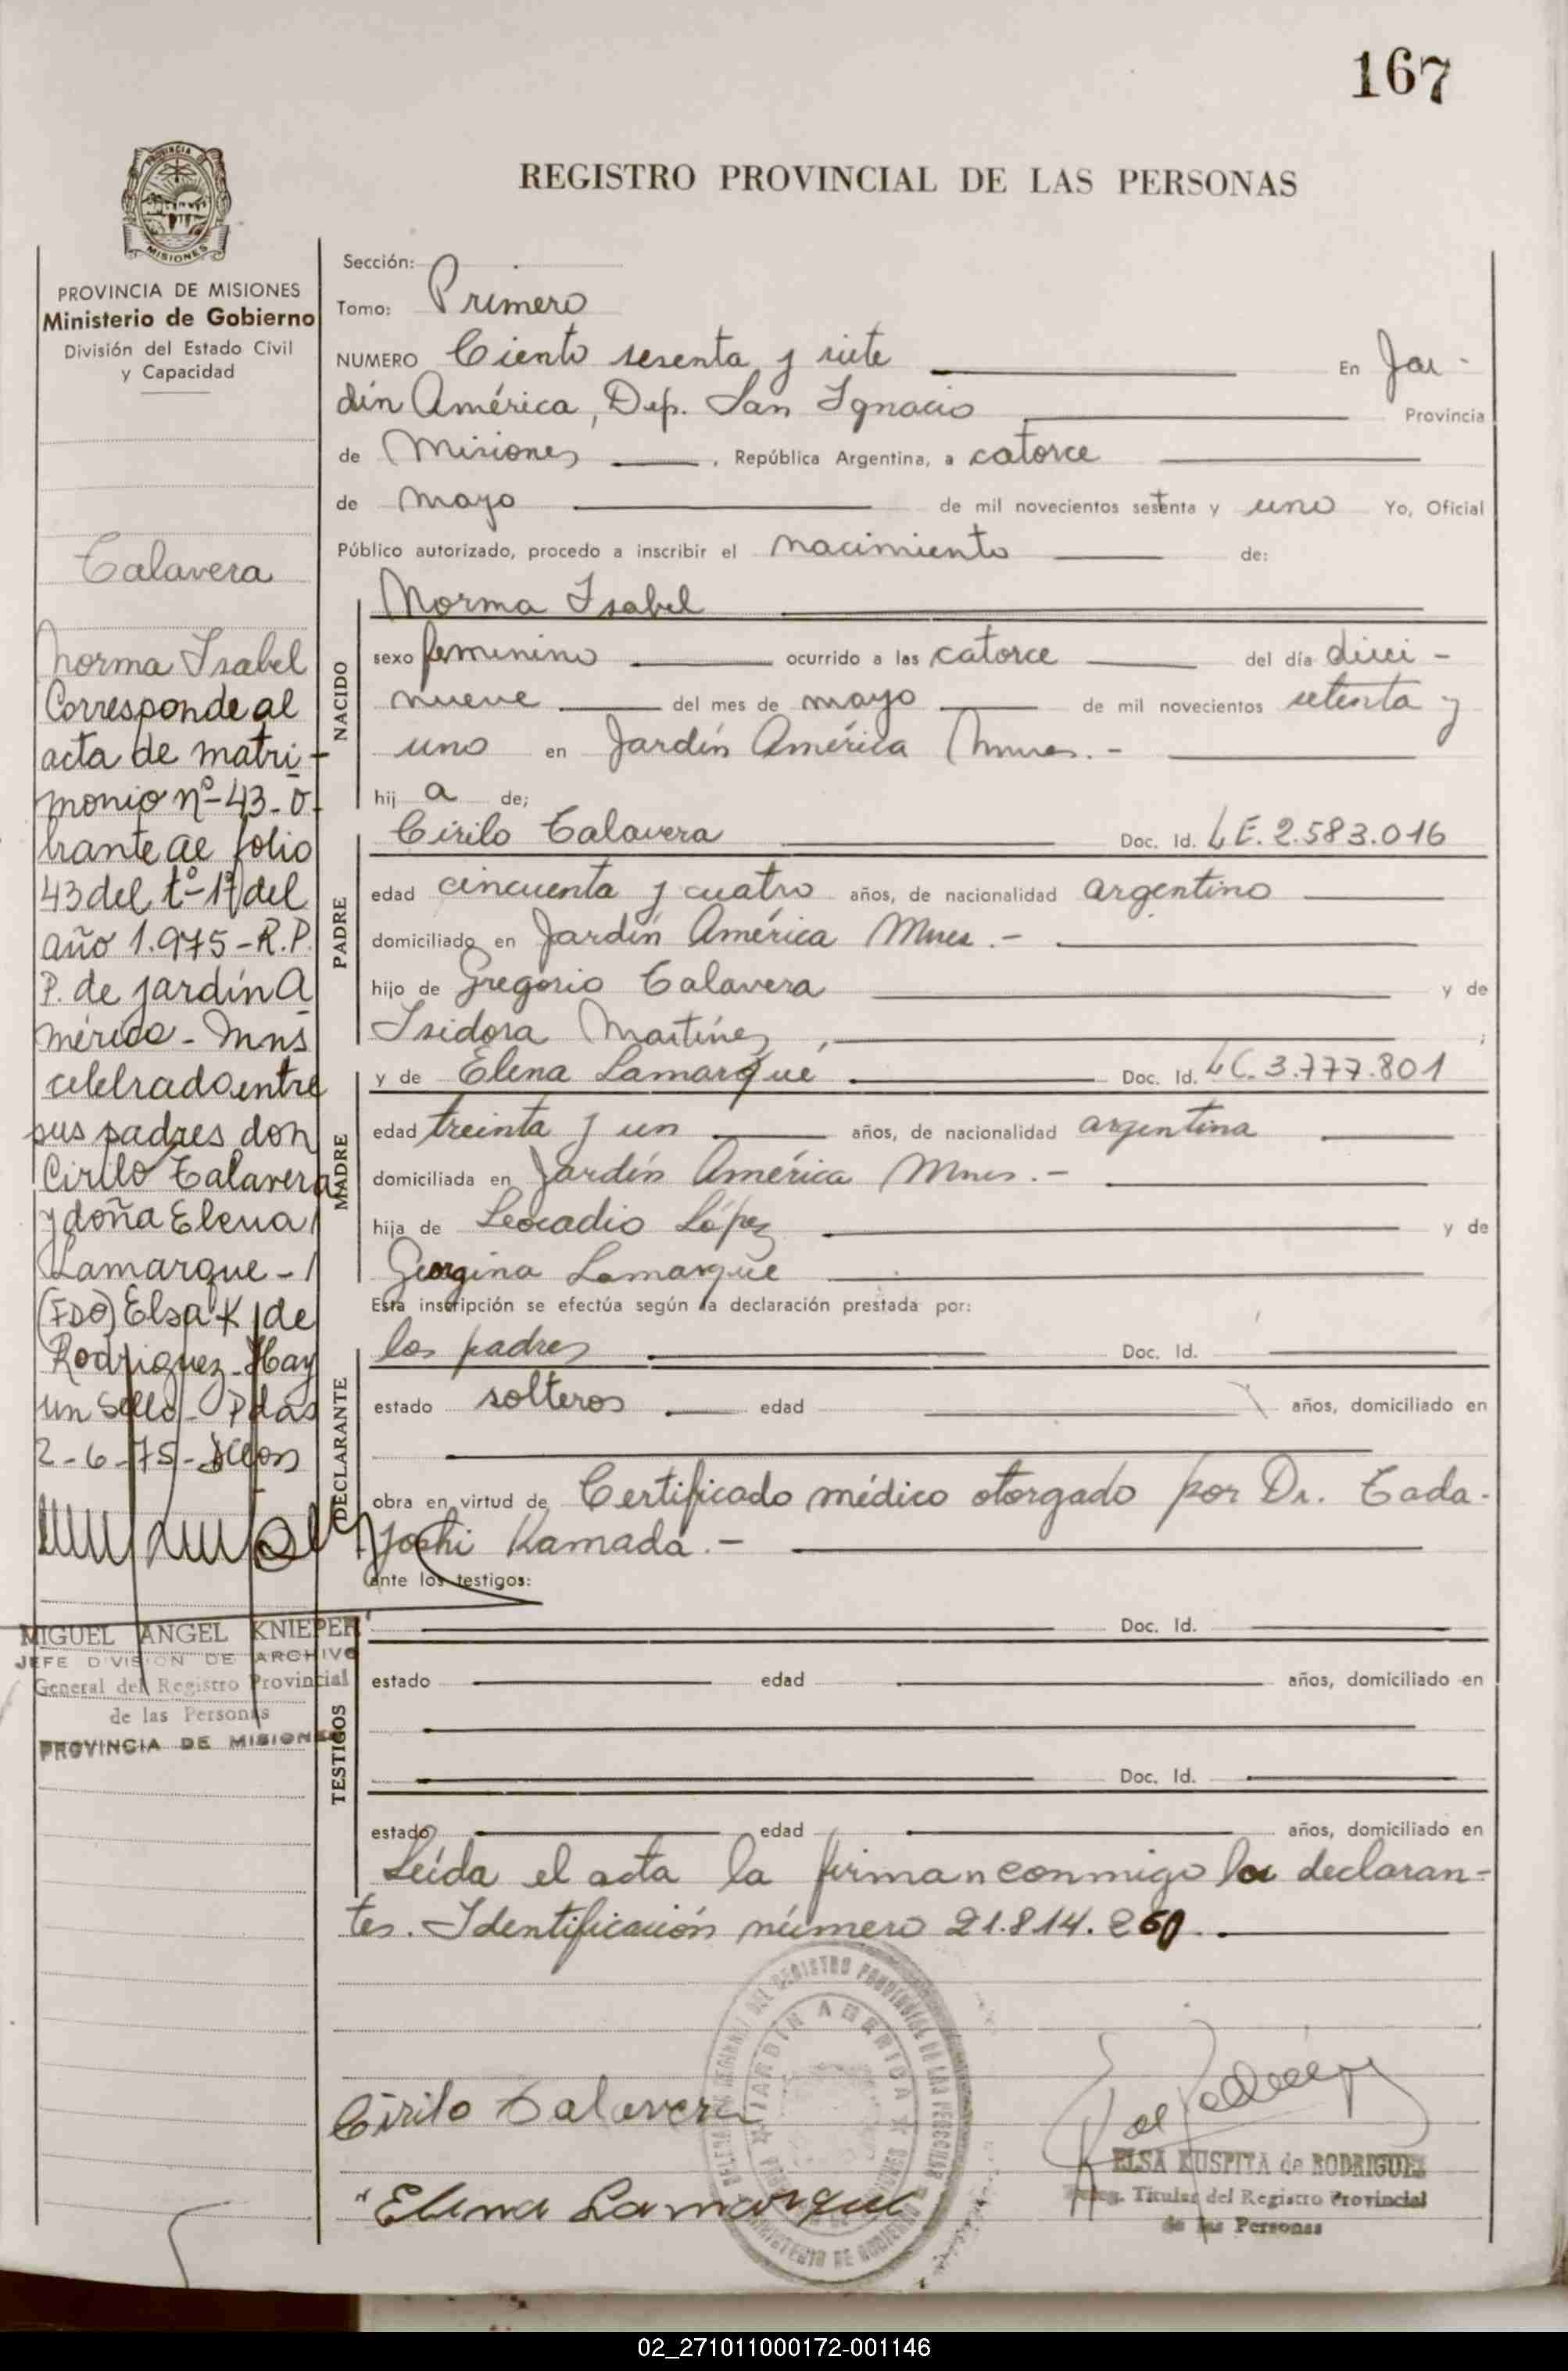 167
REGISTRO PROVINCIAL DE LAS PERSONAS
PROVINCIA
MISIONES
PROVINCIA DE MISIONES
Ministerio de Gobierno
División del Estado Civil
y Capacidad
Talavera
Norma Isabel
Corresponde al
acta de matri-
monio nº-43-o-
brante al folio
43 del tº-1º del
año 1.975-R.P.
P. de Jardín A
mérica-Mns
celebrado entre
sus padres don
Cirilo Talavera
y doña Elena
Lamarque-
(FDO) Elsa K de
Rodriguez-Hay
un Sello-Pdas
2-6-75-
MIGUEL ANGEL KNIEPER
JEFE DIVISION DE ARCHIVO
General del Registro Provincial
de las Personas
PROVINCIA DE MISIONES
Sección:
Tomo: Primero
NUMERO Ciento sesenta y siete En Jar-
dín América, Dep. San Ignacio Provincia
de Misiones, República Argentina, a catorce
de mayo de mil novecientos setenta y uno Yo, Oficial
Público autorizado, procedo a inscribir el nacimiento de:
NACIDO
Norma Isabel
sexo femenino ocurrido a las catorce del día dieci-
nueve del mes de mayo de mil novecientos setenta y
uno en Jardín América Mnes.-
hij a de;
PADRE
Cirilo Talavera Doc. Id. LE. 2.583.016
edad cincuenta y cuatro años, de nacionalidad argentino
domiciliado en Jardín América Mnes.-
hijo de Gregorio Talavera y de
Isidora Martínez ;
MADRE
y de Elena Lamarque Doc. Id. LC. 3.777.801
edad treinta y un años, de nacionalidad argentina
domiciliada en Jardín América Mnes.-
hija de Leocadio López y de
Georgina Lamarque
Esta inscripción se efectúa según la declaración prestada por:
DECLARANTE
los padres Doc. Id.
estado solteros edad años, domiciliado en
obra en virtud de Certificado médico otorgado por Dr. Tada-
yoshi Kamada.-
ante los testigos:
TESTIGOS
Doc. Id.
estado edad años, domiciliado en
Doc. Id.
estado edad años, domiciliado en
Leída el acta la firman conmigo los declaran-
tes. Identificación número 21.814.260.
JARDIN AMERICA
Cirilo Talavera
Elena Lamarque
ELSA KUSPITA de RODRIGUEZ
Titular del Registro Provincial
de las Personas
02_271011000172-001146